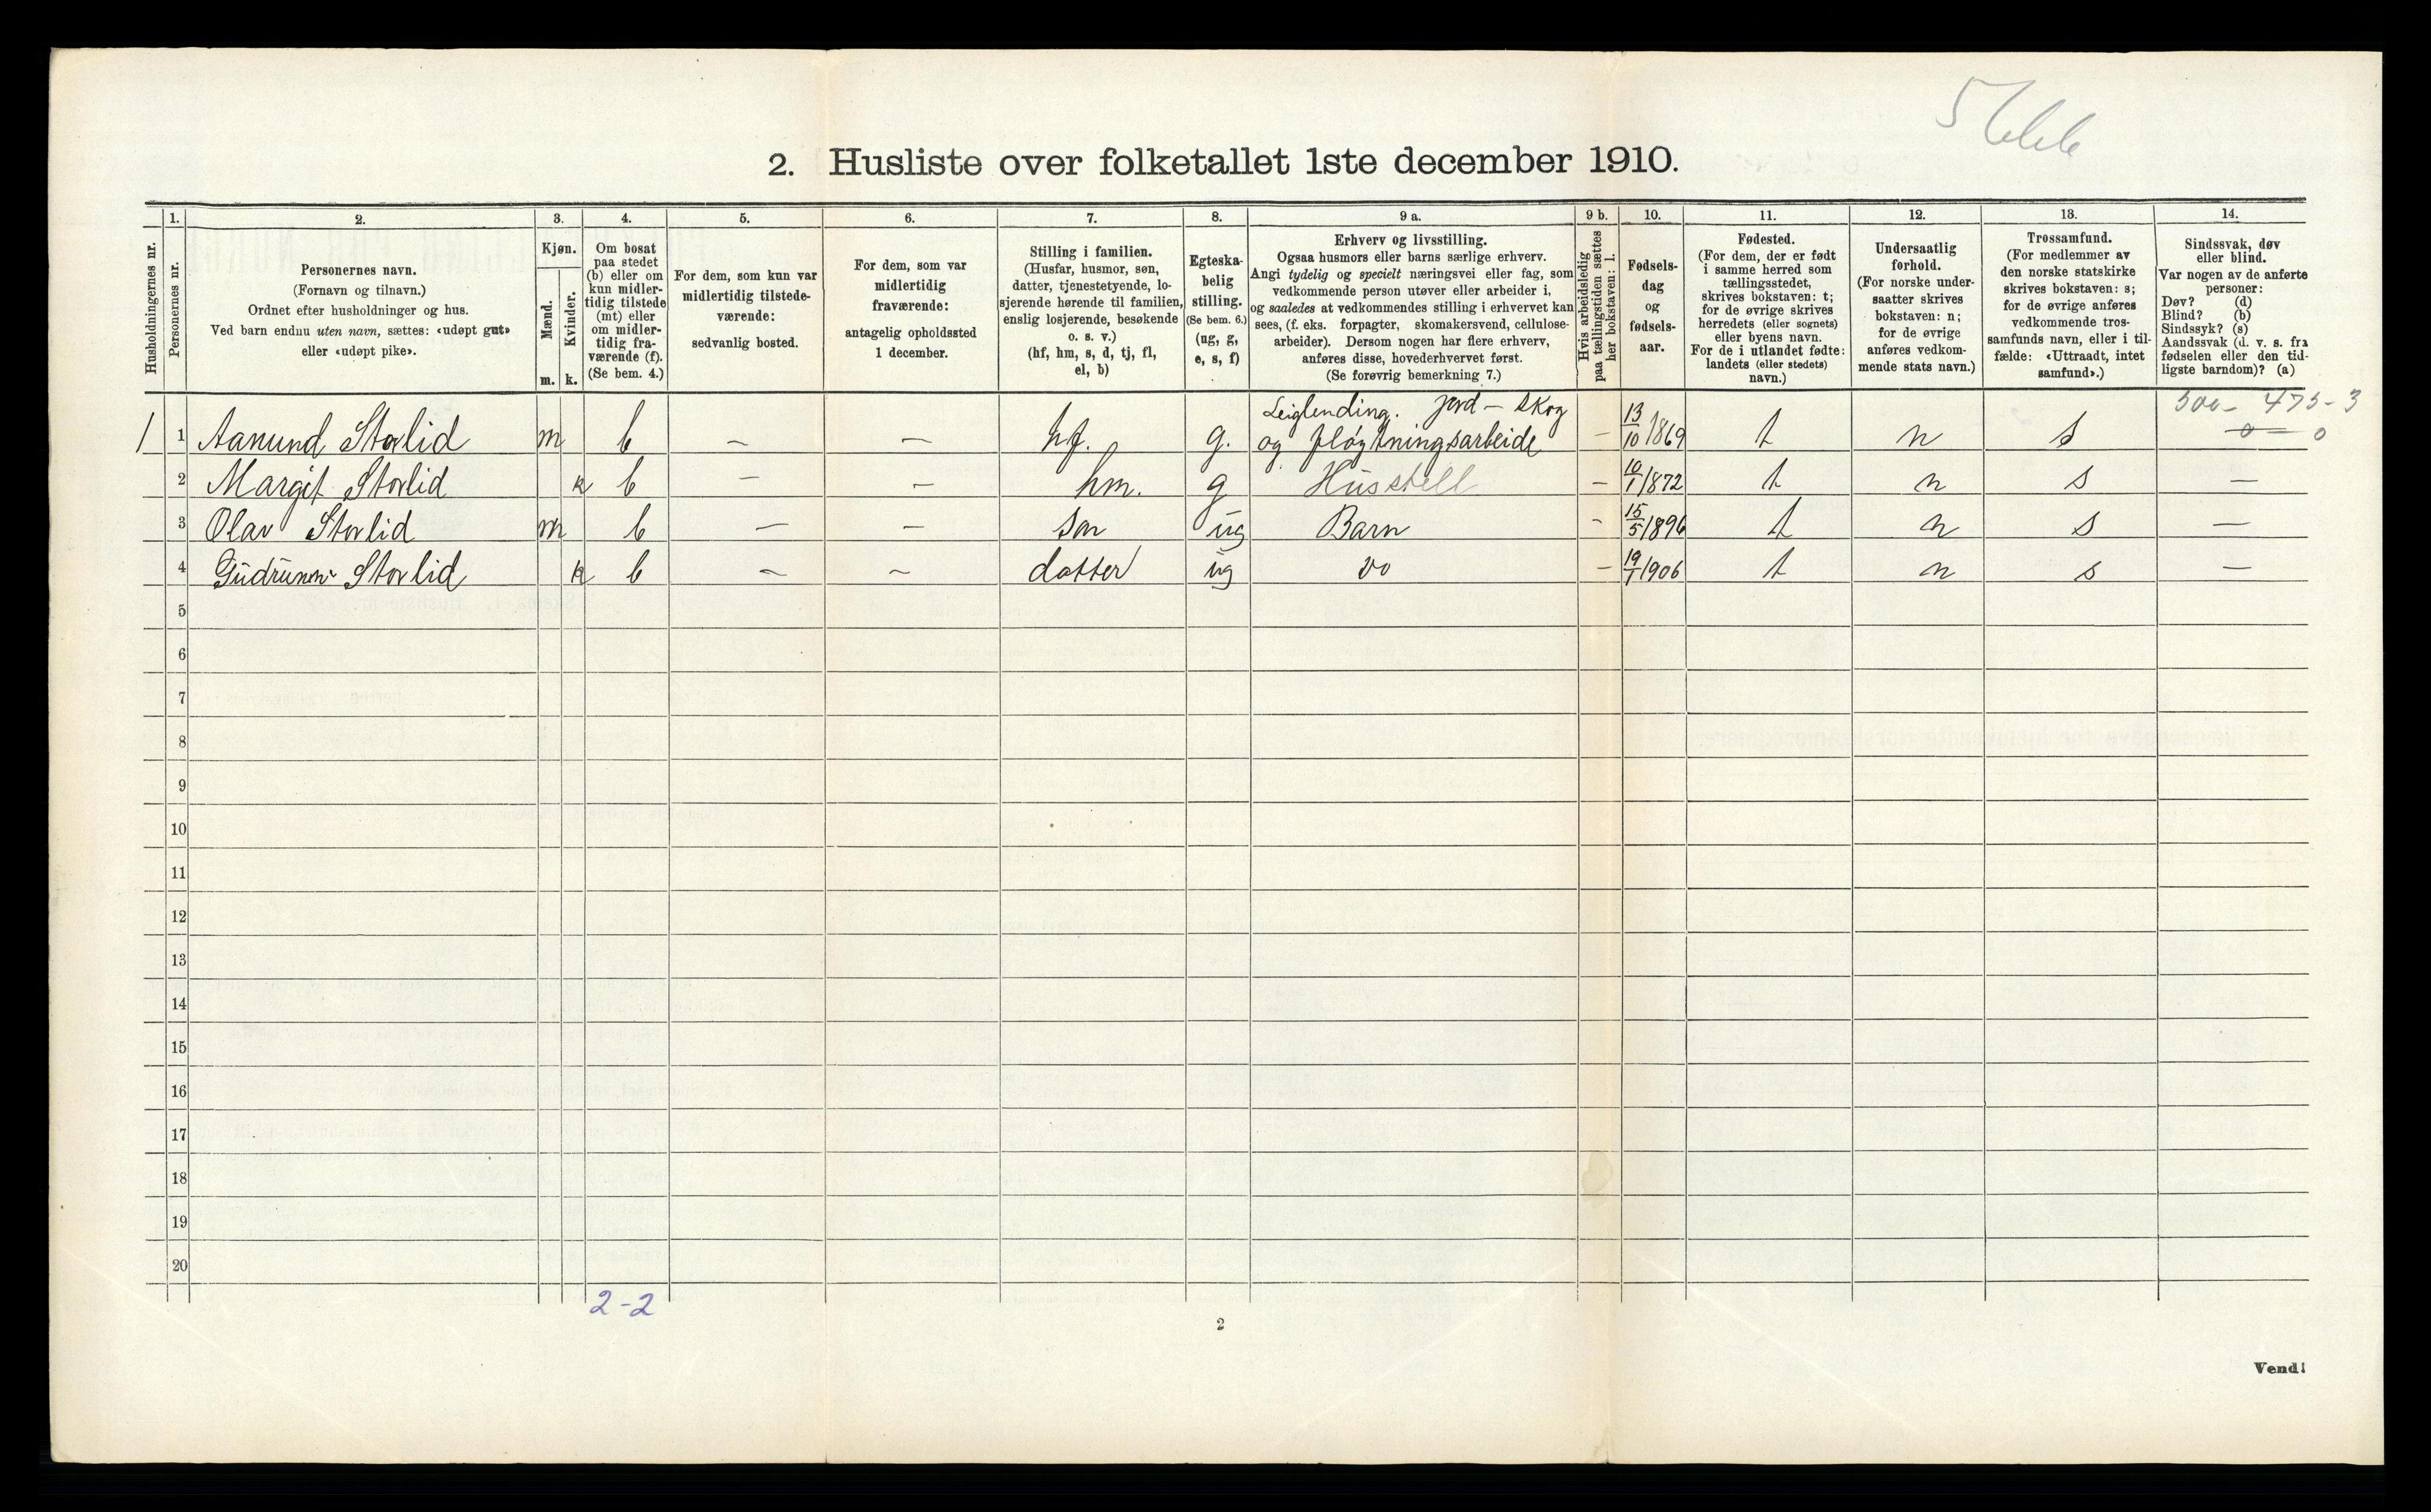 2. Husliste over folketallet 1ste december 1910.
Husholdningernes nr.
1.
Personernes nr.
2.
Personernes navn.
(Fornavn og tilnavn.)
Ordnet efter husholdninger og hus.
Ved barn endnu uten navn, sættes: «udøpt gut»
eller «udøpt pike».
3.
Kjøn.
Mænd.
Kvinder.
m. k.
4.
Om bosat
paa stedet
(b) eller om
kun midler-
tidig tilstede
(mt) eller
om midler-
tidig fra-
værende (f).
(Se bem. 4.)
5.
For dem, som kun var
midlertidig tilstede-
værende:
sedvanlig bosted.
6.
For dem, som var
midlertidig
fraværende:
antagelig opholdssted
1 december.
7.
Stilling i familien.
(Husfar, husmor, søn,
datter, tjenestetyende, lo-
sjerende hørende til familien,
enslig losjerende, besøkende
o. s. v.)
(hf, hm, s, d, tj, fl,
el, b)
8.
Egteska-
belig
stilling.
(Se bem. 6.)
(ug, g,
e, s, f)
9 a.
Erhverv og livsstilling.
Ogsaa husmors eller barns særlige erhverv.
Angi tydelig og specielt næringsvei eller fag, som
vedkommende person utøver eller arbeider i,
og saaledes at vedkommendes stilling i erhvervet kan
sees, (f. eks. forpagter, skomakersvend, cellulose-
arbeider). Dersom nogen har flere erhverv,
anføres disse, hovederhvervet først.
(Se forøvrig bemerkning 7.)
9 b.
Hvis arbeidsledig
paa tællingstiden sættes
her bokstaven: l.
10.
Fødsels-
dag
og
fødsels-
aar.
11.
Fødested.
(For dem, der er født
i samme herred som
tællingsstedet,
skrives bokstaven: t;
for de øvrige skrives
herredets (eller sognets)
eller byens navn.
For de i utlandet fødte:
landets (eller stedets)
navn.)
12.
Undersaatlig
forhold.
(For norske under-
saatter skrives
bokstaven: n;
for de øvrige
anføres vedkom-
mende stats navn.)
13.
Trossamfund.
(For medlemmer av
den norske statskirke
skrives bokstaven: s;
for de øvrige anføres
vedkommende tros-
samfunds navn, eller i til-
fælde: «Uttraadt, intet
samfund».)
14.
Sindssvak, døv
eller blind.
Var nogen av de anførte
personer:
Døv? (d)
Blind? (b)
Sindssyk? (s)
Aandssvak (d. v. s. fra
fødselen eller den tid-
ligste barndom)? (a)
500 - 475 - 3
0 - 0
Leiglending. jord - skog
1 1 Aanund Storlid m b - - hf. g. og fløytningsarbeide - 13/10 1869 t n s
2 Margit Storlid k b - - hm. g Husstell - 10/1 1872 t n s -
3 Olav Storlid m b - - son ug Barn - 15/5 1896 t n s -
4 Gudrunn Storlid k b - - dotter ug do - 19/1 1906 t n s -
5
6
7
8
9
10
11
12
13
14
15
16
17
18
19
20
2-2
2
Vend!